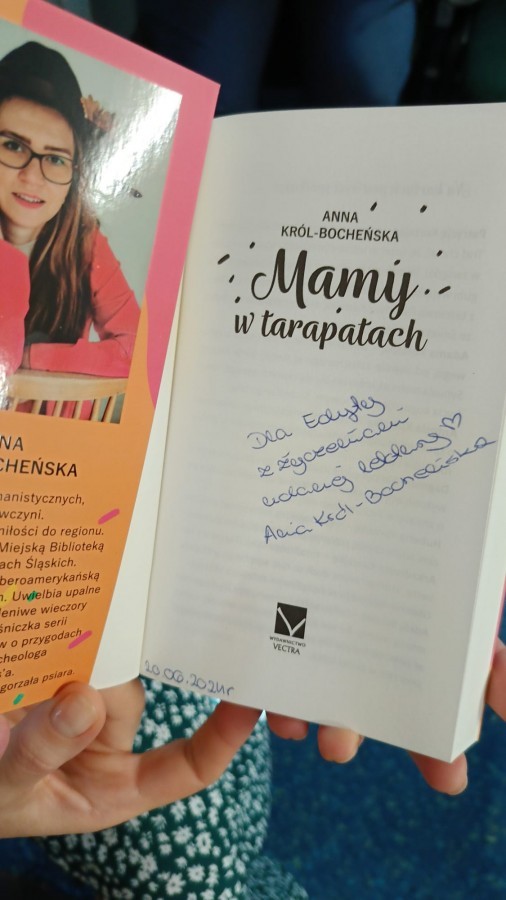 NNA
CHEŃSKA
manistycznych,
wczyni.
miłości do regionu.
Miejską Biblioteką
ach Śląskich.
beroamerykańską
h. Uwielbia upalne
leniwe wieczory
śniczka serii
w o przygodach
cheologa
s'a.
łgorzała psiara.
ANNA
KRÓL-BOCHEŃSKA
Mamy
w tarapatach
Dla Edyty
z życzeniami
udanej lektury
Ania Król-Bocheńska
WYDAWNICTWO
VECTRA
20.06.2024r